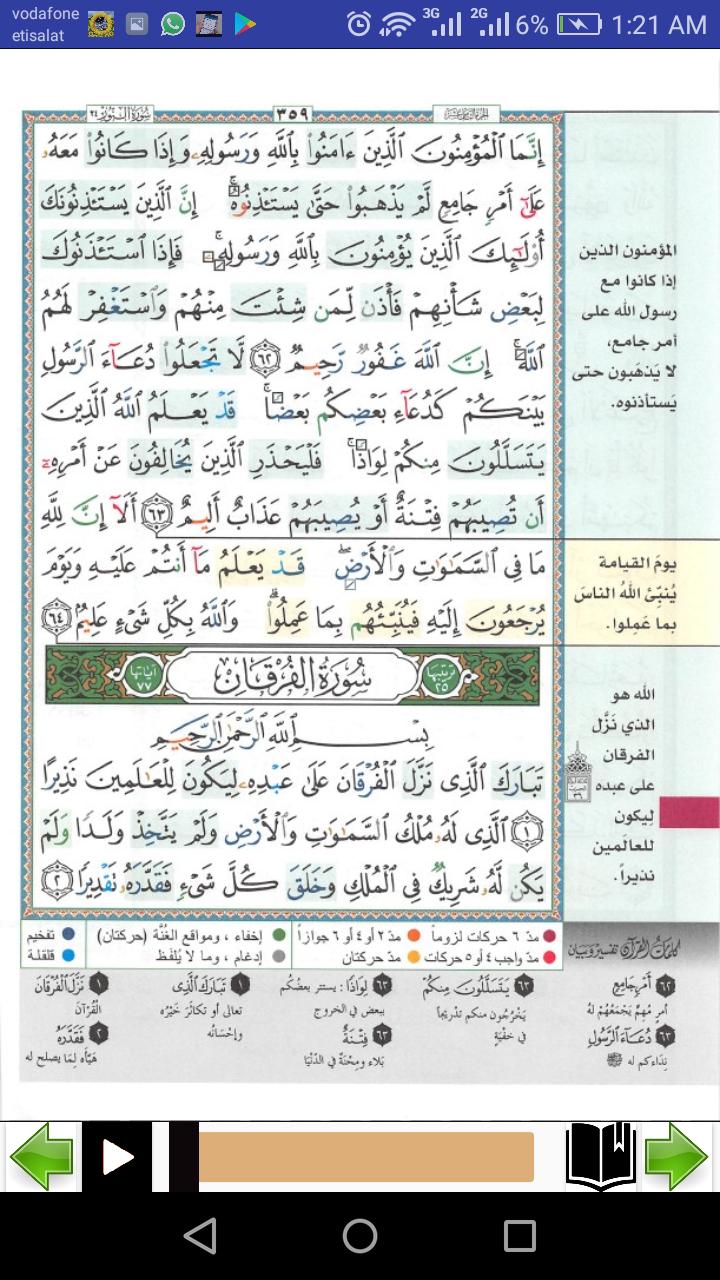 vodafone
etisalat
3G 2G 6% 1:21 AM
سورة النور ٢٤
٣٥٩
الجزء الثامن عشر
إِنَّمَا ٱلْمُؤْمِنُونَ ٱلَّذِينَ ءَامَنُوا۟ بِٱللَّهِ وَرَسُولِهِۦ وَإِذَا كَانُوا۟ مَعَهُۥ
عَلَىٰٓ أَمْرٍ جَامِعٍ لَّمْ يَذْهَبُوا۟ حَتَّىٰ يَسْتَـْٔذِنُوهُ ۚ إِنَّ ٱلَّذِينَ يَسْتَـْٔذِنُونَكَ
أُو۟لَـٰٓئِكَ ٱلَّذِينَ يُؤْمِنُونَ بِٱللَّهِ وَرَسُولِهِۦ ۚ فَإِذَا ٱسْتَـْٔذَنُوكَ
لِبَعْضِ شَأْنِهِمْ فَأْذَن لِّمَن شِئْتَ مِنْهُمْ وَٱسْتَغْفِرْ لَهُمُ
ٱللَّهَ ۚ إِنَّ ٱللَّهَ غَفُورٌ رَّحِيمٌ ٦٢ لَّا تَجْعَلُوا۟ دُعَآءَ ٱلرَّسُولِ
بَيْنَكُمْ كَدُعَآءِ بَعْضِكُم بَعْضًا ۚ قَدْ يَعْلَمُ ٱللَّهُ ٱلَّذِينَ
يَتَسَلَّلُونَ مِنكُمْ لِوَاذًا ۚ فَلْيَحْذَرِ ٱلَّذِينَ يُخَالِفُونَ عَنْ أَمْرِهِۦٓ
أَن تُصِيبَهُمْ فِتْنَةٌ أَوْ يُصِيبَهُمْ عَذَابٌ أَلِيمٌ ٦٣ أَلَآ إِنَّ لِلَّهِ
مَا فِى ٱلسَّمَـٰوَٰتِ وَٱلْأَرْضِ ۖ قَدْ يَعْلَمُ مَآ أَنتُمْ عَلَيْهِ وَيَوْمَ
يُرْجَعُونَ إِلَيْهِ فَيُنَبِّئُهُم بِمَا عَمِلُوا۟ ۗ وَٱللَّهُ بِكُلِّ شَىْءٍ عَلِيمٌۢ ٦٤
ترتيبها ٢٥
سُورَةُ الفُرْقَانِ
آياتها ٧٧
بِسْمِ ٱللَّهِ ٱلرَّحْمَـٰنِ ٱلرَّحِيمِ
تَبَارَكَ ٱلَّذِى نَزَّلَ ٱلْفُرْقَانَ عَلَىٰ عَبْدِهِۦ لِيَكُونَ لِلْعَـٰلَمِينَ نَذِيرًا
١ ٱلَّذِى لَهُۥ مُلْكُ ٱلسَّمَـٰوَٰتِ وَٱلْأَرْضِ وَلَمْ يَتَّخِذْ وَلَدًا وَلَمْ
يَكُن لَّهُۥ شَرِيكٌ فِى ٱلْمُلْكِ وَخَلَقَ كُلَّ شَىْءٍ فَقَدَّرَهُۥ تَقْدِيرًا ٢
المؤمنون الذين
إذا كانوا مع
رسول الله على
أمر جامع،
لا يَذهَبون حتى
يَستأذنوه.
يومَ القيامة
يُنبِّئُ اللهُ الناسَ
بما عَمِلوا.
الله هو
الذي نَزَّل
الفرقان
على عبده
لِيكون
للعالَمين
نذيراً.
مدّ ٦ حركات لزوماً مدّ ٢ أو ٤ أو ٦ جوازاً إخفاء ، ومواقع الغُنَّة (حركتان) تفخيم
مدّ واجب ٤ أو ٥ حركات مدّ حركتان إدغام ، وما لا يُلفَظ قلقلة
كلمات القرآن تفسير وبيان
٦٢ أَمْرٍ جَامِعٍ
أمرٍ مُهِمٍّ يَجْمَعُهُمْ لَهُ
٦٣ دُعَاءَ الرَّسُولِ
نِدَاءكم له ﷺ
٦٣ يَتَسَلَّلُونَ مِنكُمْ
يَخْرُجُون منكم تدْرِيجاً
في خفْيَةٍ
٦٣ لِوَاذًا : يستتر بعضُكم
ببعض في الخروج
٦٣ فِتْنَةٌ
بَلاء ومِحْنَة في الدّنْيَا
١ تَبَارَكَ الَّذِى
تعالى أو تكاثَر خَيْرُه
وإحْسَانُه
١ نَزَّلَ الْفُرْقَانَ
القُرْآنَ
٢ فَقَدَّرَهُ
هَيَّأه لِمَا يصلح له